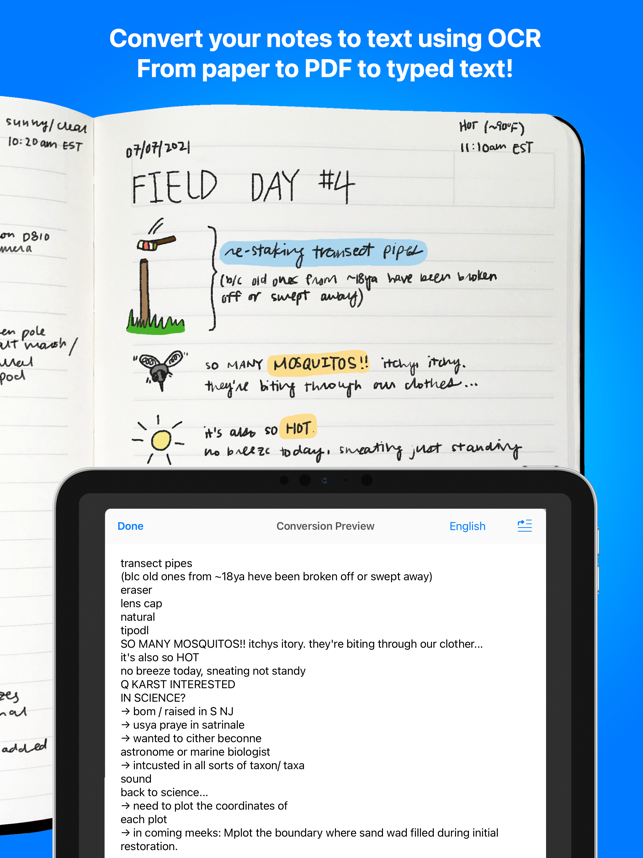 Convert your notes to text using OCR
From paper to PDF to typed text!
sunny/clear
10:20am EST
on D810
mera
en pole
alt marsh/
pod
zes
added
07/07/2021
HOT (~90°F)
11:10am EST
FIELD DAY #4
re-staking transect pipes
(b/c old ones from ~18ya have been broken
off or swept away)
SO MANY MOSQUITOS!! itchy, itchy.
they're biting through our clothes...
it's also so HOT.
no breeze today, sweating just standing
Done
Conversion Preview
English
transect pipes
(blc old ones from ~18ya heve been broken off or swept away)
eraser
lens cap
natural
tipodl
SO MANY MOSQUITOS!! itchys itory. they're biting through our clother...
it's also so HOT
no breeze today, sneating not standy
Q KARST INTERESTED
IN SCIENCE?
→ bom / raised in S NJ
→ usya praye in satrinale
→ wanted to cither beconne
astronome or marine biologist
→ intcusted in all sorts of taxon/ taxa
sound
back to science...
→ need to plot the coordinates of
each plot
→ in coming meeks: Mplot the boundary where sand wad filled during initial
restoration.